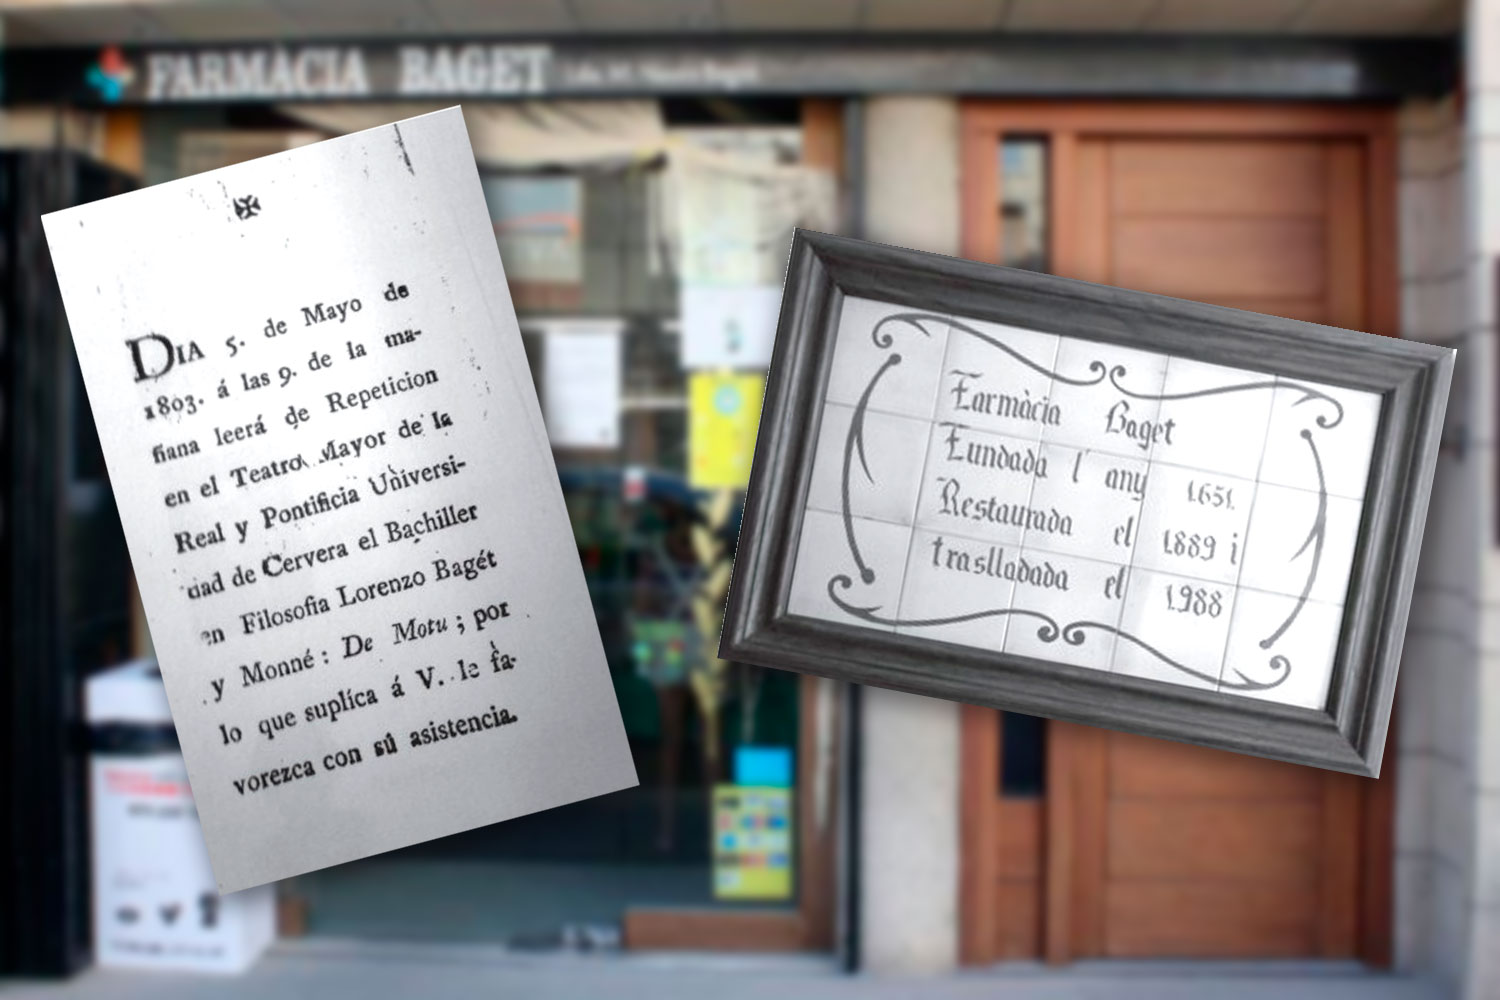 FARMÀCIA BAGET
DIA 5. de Mayo de
1803. á las 9. de la ma-
ñana leerá de Repeticion
en el Teatro Mayor de la
Real y Pontificia Universi-
dad de Cervera el Bachiller
en Filosofia Lorenzo Bagét
y Monné : De Motu ; por
lo que suplíca á V. le fa-
vorezca con sú asistencia.
Farmàcia Baget
Fundada l' any 1651.
Restaurada el 1889 i
traslladada el 1988